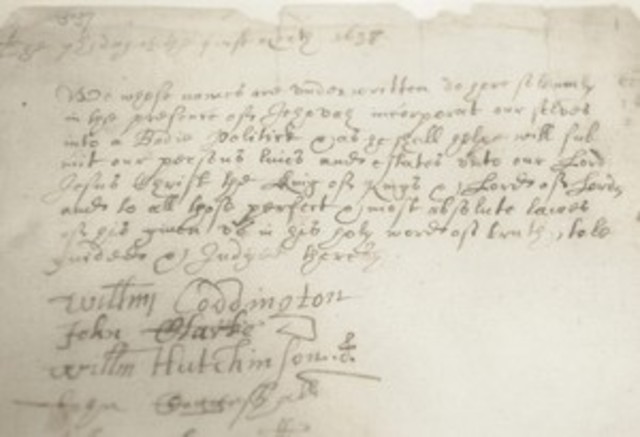 1638
We whose names are underwritten do here solemnly
in the presence of Jehovah incorporat our selves
into a Bodie Politick & as he shall helpe will sub
mit our persons lives and estates unto our Lord
Jesus Christ the King of Kings & Lord of Lords
and to all those perfect & most absolute lawes
of his given us in his holy word of truth, to be
guided & Judged thereby
Willm Coddington
John Clarke
Willm Hutchinson